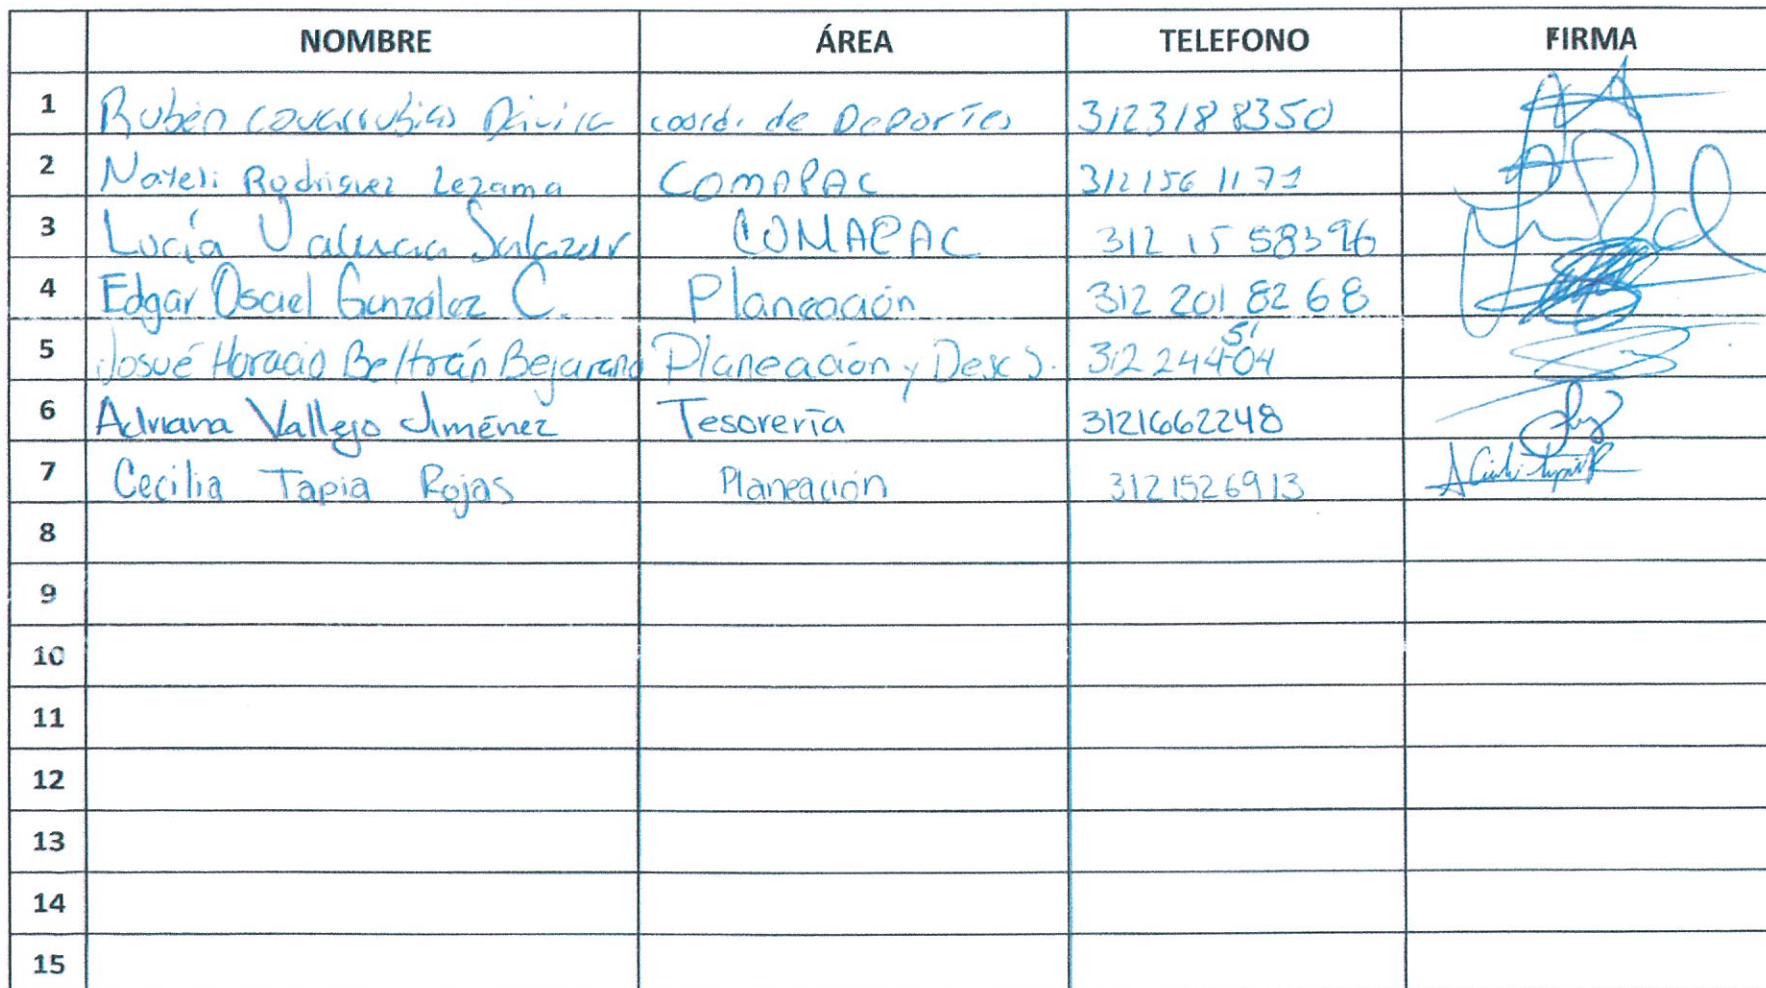 NOMBRE ÁREA TELEFONO FIRMA
1 Rubén Covarrubias Dávila coord. de Deportes 3123188350
2 Nayeli Rodriguez Lezama COMAPAC 3121561171
3 Lucía Valencia Salazar COMAPAC 312 15 58396
4 Edgar Osciel González C. Planeación 312 201 82 68
5 Josué Horacio Beltrán Bejarano Planeación y Desc S. 312 244
6 Adriana Vallejo Jiménez Tesorería 3121662248
7 Cecilia Tapia Rojas Planeación 3121526913
8
9
10
11
12
13
14
15